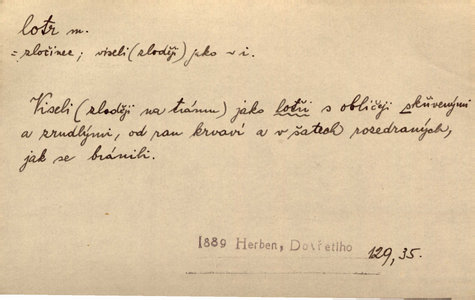 lotr m.
= zločinec; viseli (zloději) jako ~ i.
Viseli (zloději na trámu) jako lotři s obličeji skřivenými
a zrudlými, od ran krvaví a v šatech rozedraných,
jak se bránili.
1889 Herben, Do třetího 129, 35.